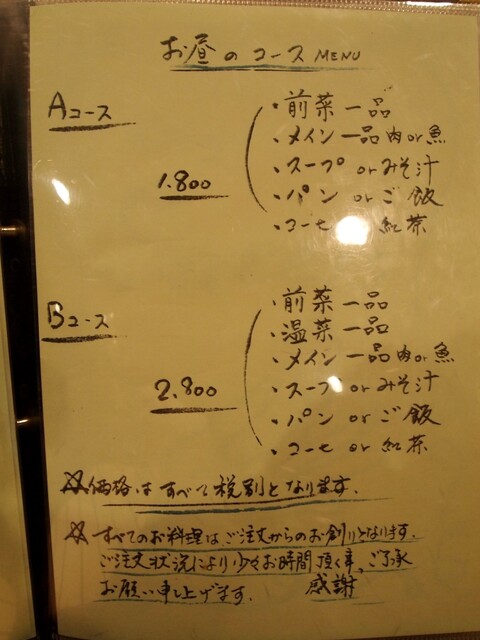 お昼のコース MENU
Aコース
・前菜一品
・メイン一品肉or魚
・スープ orみそ汁
1.800
・パン or ご飯
・コーヒ 紅茶
Bコース
・前菜一品
・温菜一品
・メイン一品肉or魚
・スープ orみそ汁
2.800
・パン or ご飯
・コーヒ or 紅茶
☆価格はすべて税別となります.
☆すべてのお料理はご注文からのお創りとなります.
ご注文状況により少々お時間頂く事、ご了承
お願い申し上げます. 感謝